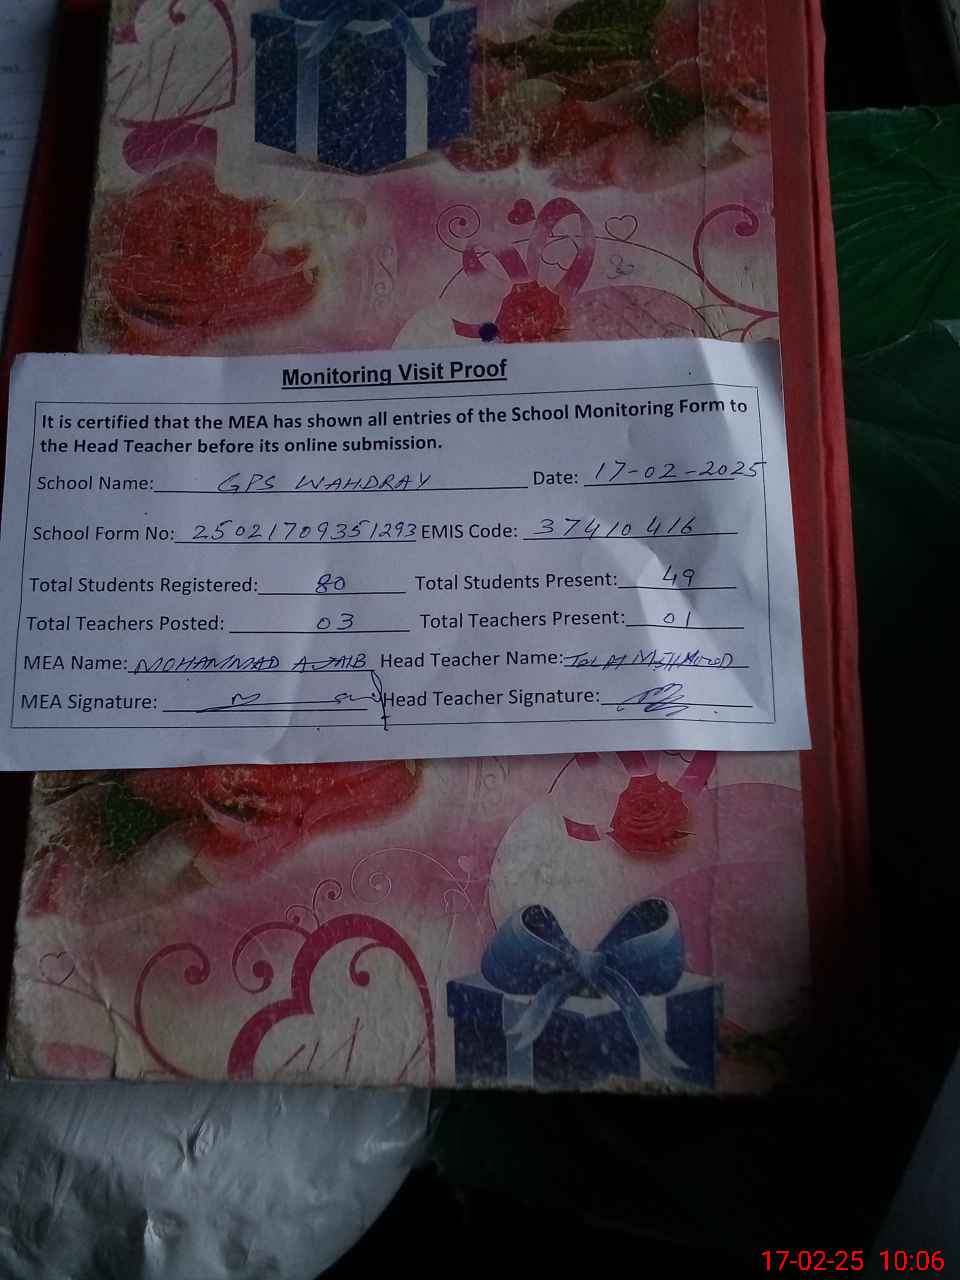 Monitoring Visit Proof
It is certified that the MEA has shown all entries of the School Monitoring Form to
the Head Teacher before its online submission.
School Name: GPS WAHDRAY Date: 17-02-2025
School Form No: 25021709351293 EMIS Code: 37410416
Total Students Registered: 80 Total Students Present: 49
Total Teachers Posted: 03 Total Teachers Present: 01
MEA Name: MOHAMMAD AJAIB Head Teacher Name:
MEA Signature: Head Teacher Signature:
17-02-25 10:06